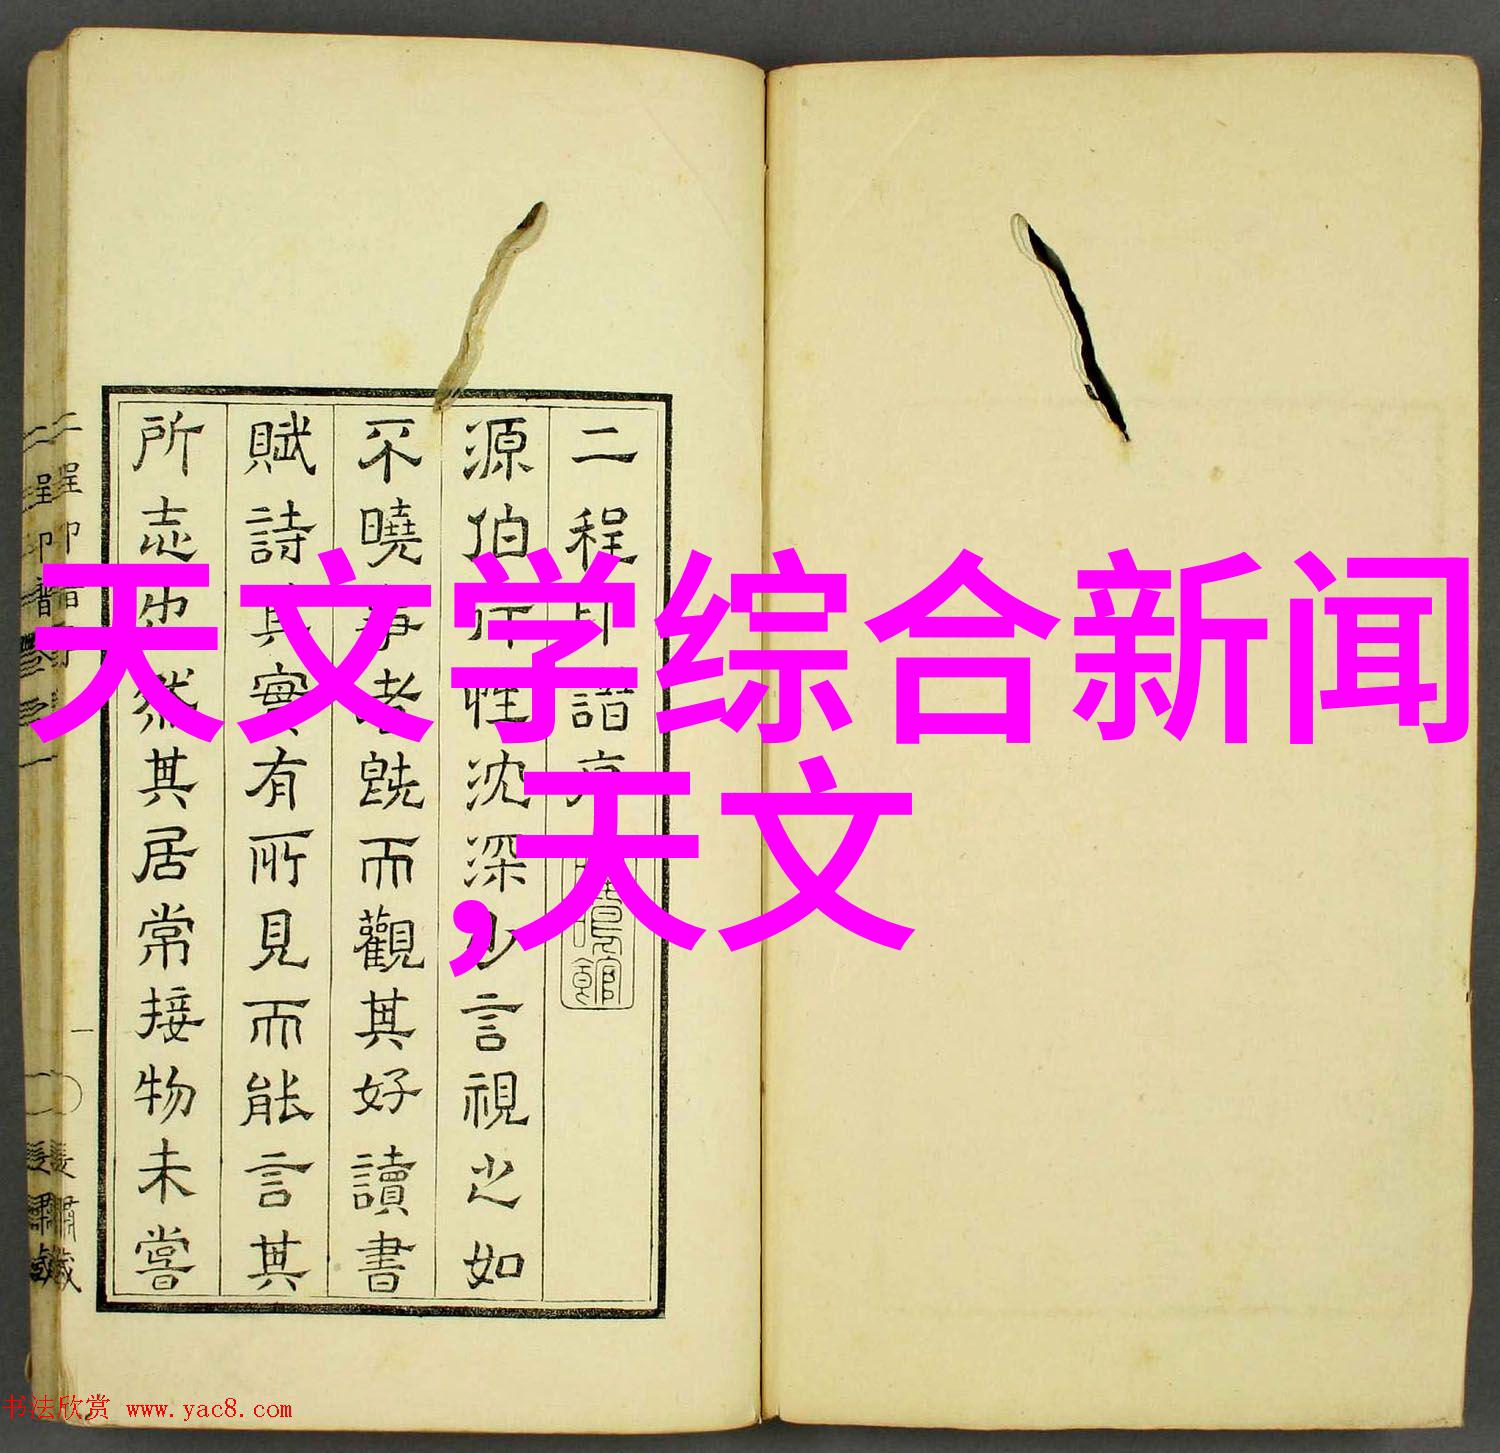 天文学综合新闻
,天文
二程印譜序
源伯性沈深少言視之如
不曉事者旣而觀其好讀書
賦詩其實有所見而能言其
所志也然其居常接物未嘗
书法欣赏 www.yac8.com